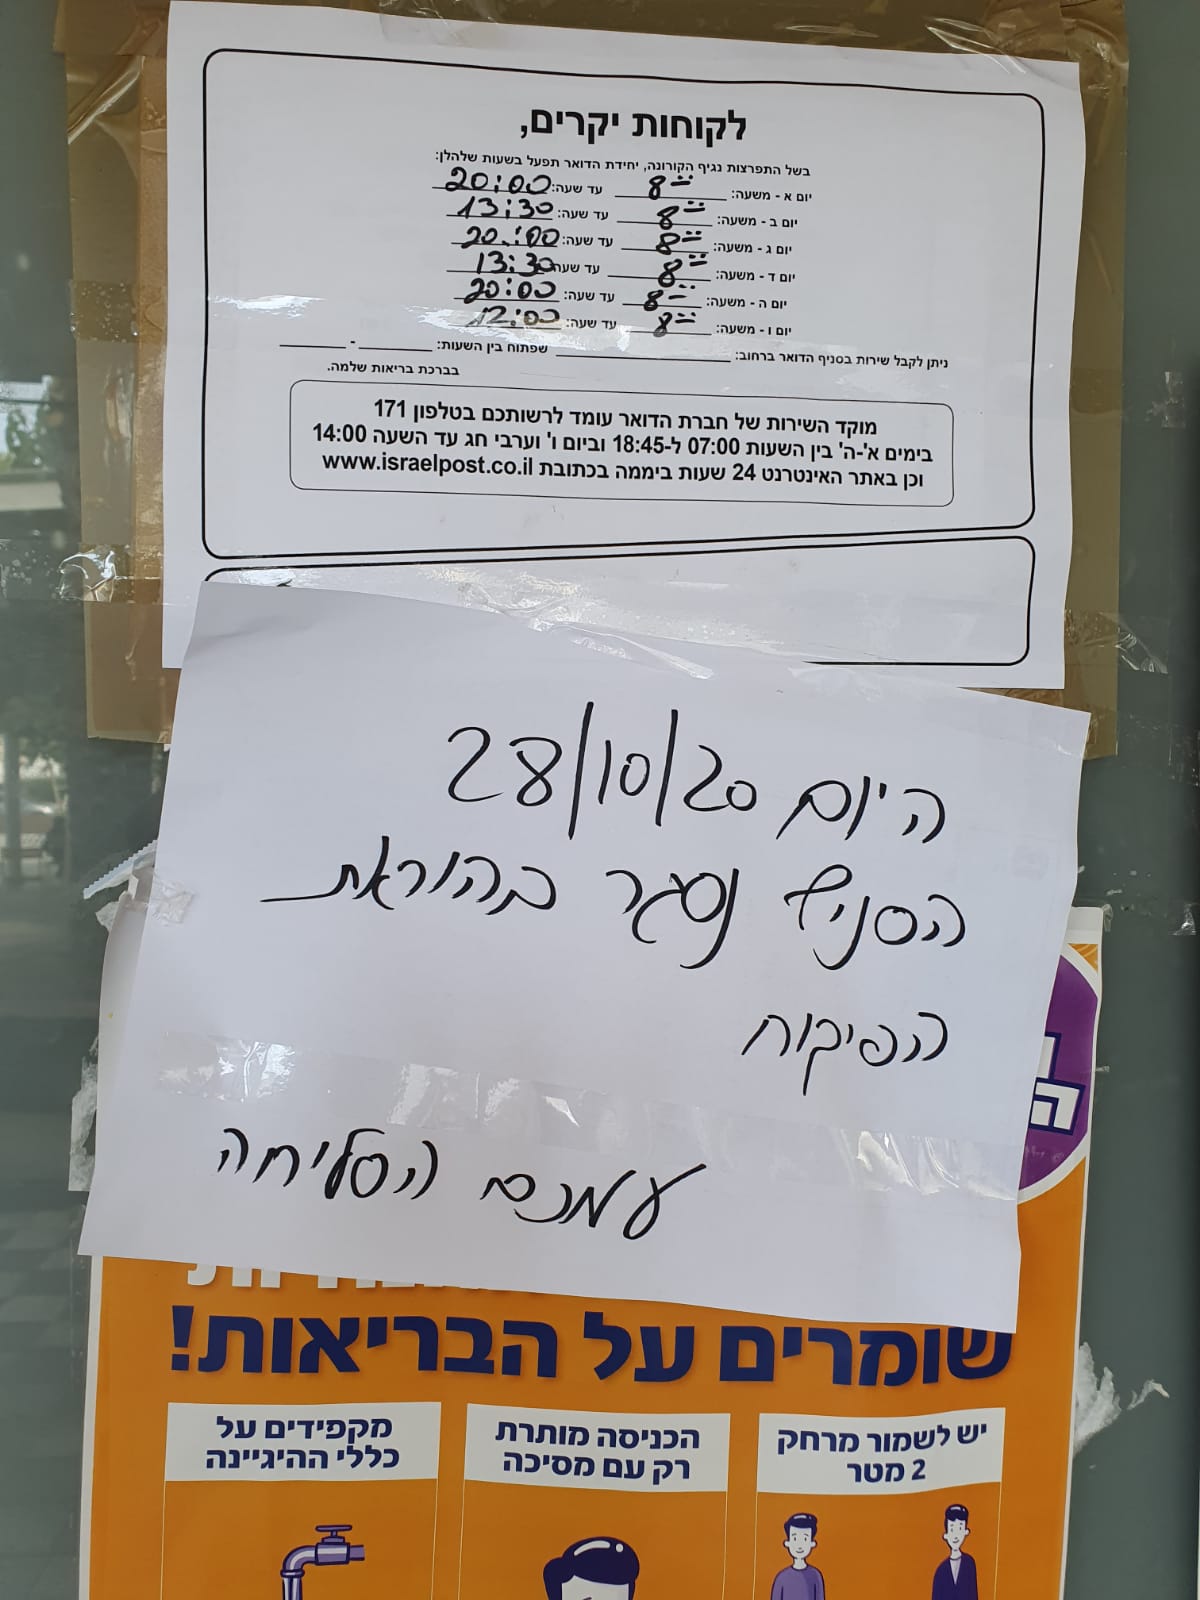 לקוחות יקרים,
בשל התפרצות נגיף הקורונה, יחידת הדואר תפעל בשעות שלהלן:
יום א - משעה: 8:00 עד שעה: 20:00
יום ב - משעה: 8:00 עד שעה: 13:30
יום ג - משעה: 8:00 עד שעה: 20:00
יום ד - משעה: 8:00 עד שעה 13:30
יום ה - משעה: 8:00 עד שעה: 20:00
יום ו - משעה: 8:00 עד שעה: 12:00
ניתן לקבל שירות בסניף הדואר ברחוב: ____________ שפתוח בין השעות: ______ - ______
בברכת בריאות שלמה.
מוקד השירות של חברת הדואר עומד לרשותכם בטלפון 171
בימים א'-ה' בין השעות 07:00 ל-18:45 וביום ו' וערבי חג עד השעה 14:00
וכן באתר האינטרנט 24 שעות ביממה בכתובת www.israelpost.co.il
היום 28/10/20
הסניף נסגר בהוראת
הפיקוח
עמכם הסליחה
שומרים על הבריאות!
יש לשמור מרחק
2 מטר
הכניסה מותרת
רק עם מסיכה
מקפידים על
כללי ההיגיינה